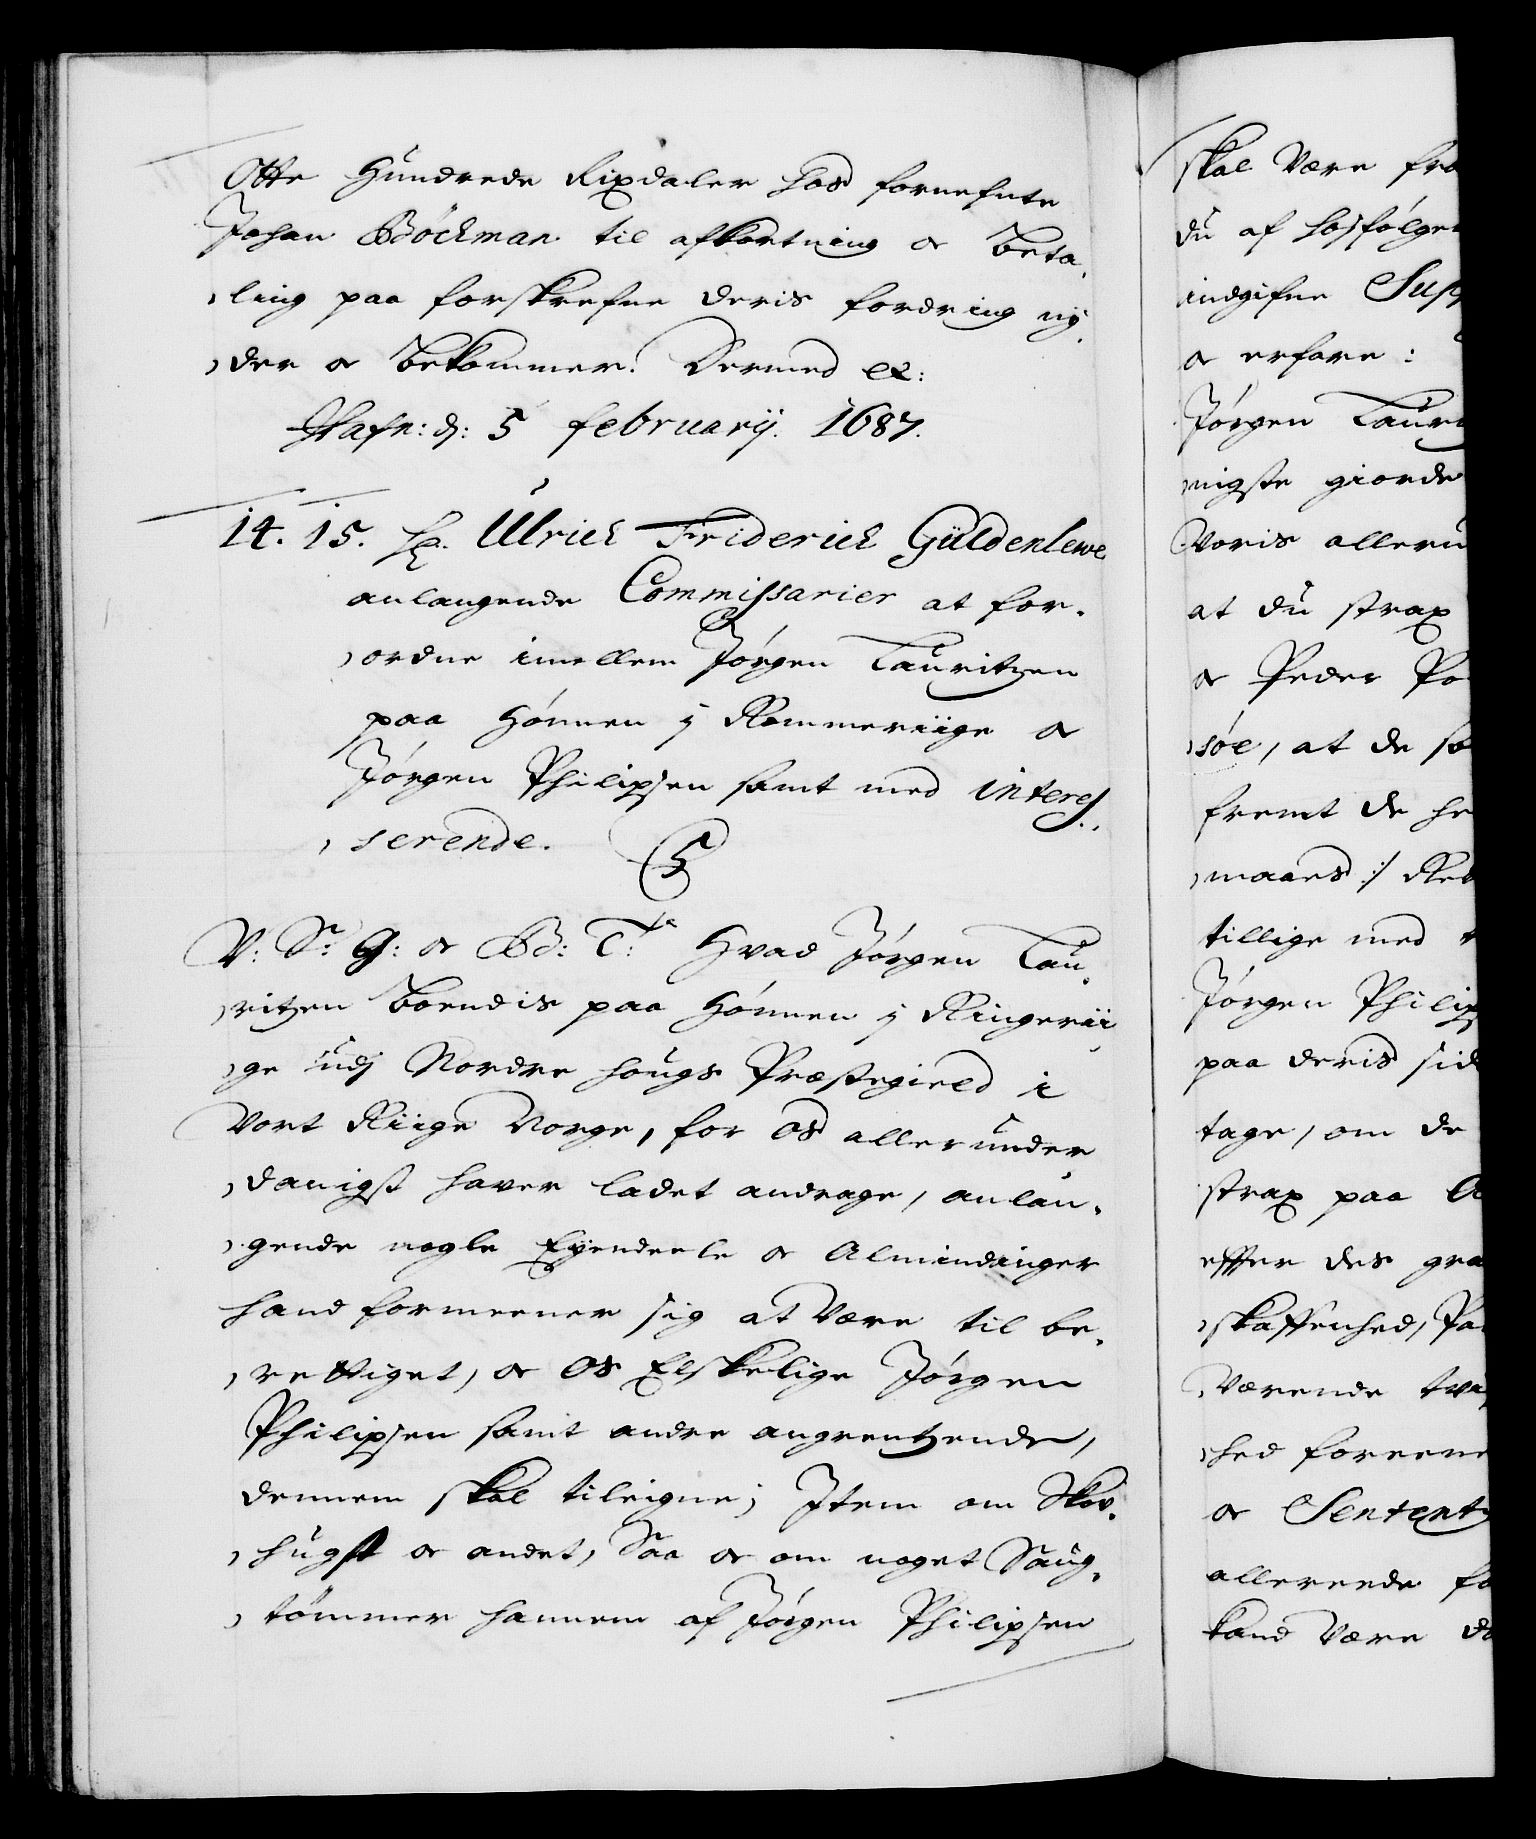 Otte Hundrede Rixdaler hos fornefnte
Johan Böckman til afkortning oc beta
ling paa forskrefne deris fordring ny
der oc bekommer. Dermed etc:
Hafn: d: 5 februarij. 1687.
14. 15. Hr. Ulrich Friderich Güldenlewe
anlangende Commissarier at for
ordne imellem Jörgen Lauritzen
paa Hönnen j Rommeriige oc
Jörgen Philipsen samt med interes
serende.
V: S: G: oc Bd: T: Hvad Jörgen Lau
ritzen boendis paa Hönnen j Ringerii
ge udj Nordre hougs Præstegield i
Vort Riige Norge, for os allerunder
danigst haver ladet andrage, anlan
gende nogle Eÿendeele oc Almindinger
hand formeener sig at være til be
rettiget, oc os Elskelige Jörgen
Philipsen samt andre angrentzende,
dennem skal tileigne; Item om Skov
hugst oc andet, Saa oc om noget Saug
tömmer hannem af Jörgen Philipsen
skal være fra
du af hosfölgen
indgifne Sup
oc erfare:
Jörgen Laur
nigste giorde
Voris alleru
at du strax
oc Peder Po
söe, at de sa
fremt de he
maaes :/ Res
tillige med
Jörgen Philip
paa deris sid
tage, om de
strax paa A
effter des gra
skaffenhed, Pa
værende tvi
hed foreene
oc Sentent
allereede fo
kand være d